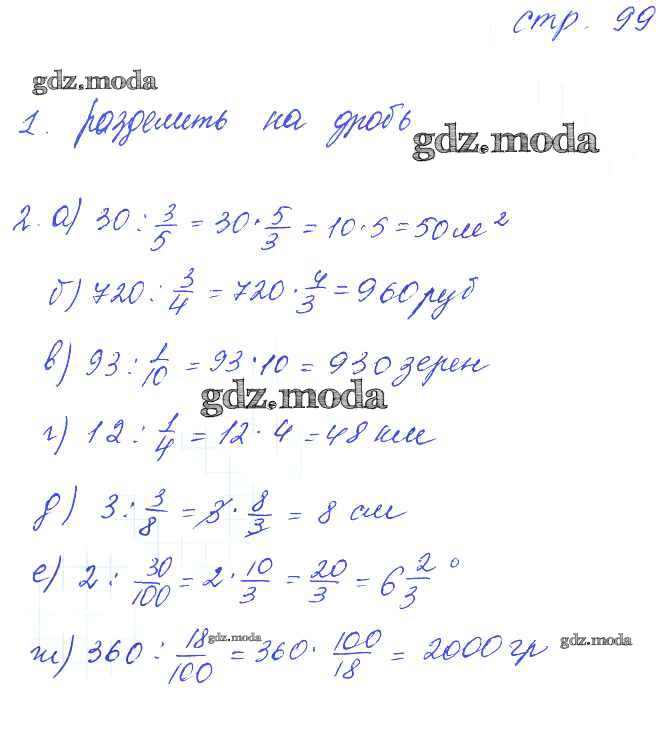 стр. 99
gdz.moda
1. разделить на дробь
gdz.moda
2. а) 30 : 3/5 = 30 · 5/3 = 10 · 5 = 50 м²
б) 720 : 3/4 = 720 · 4/3 = 960 руб
в) 93 : 1/10 = 93 · 10 = 930 зерен
gdz.moda
г) 12 : 1/4 = 12 · 4 = 48 км
д) 3 : 3/8 = 3 · 8/3 = 8 см
е) 2 : 30/100 = 2 · 10/3 = 20/3 = 6 2/3 °
ж) 360 : 18/100 = 360 · 100/18 = 2000 гр
gdz.moda
gdz.moda